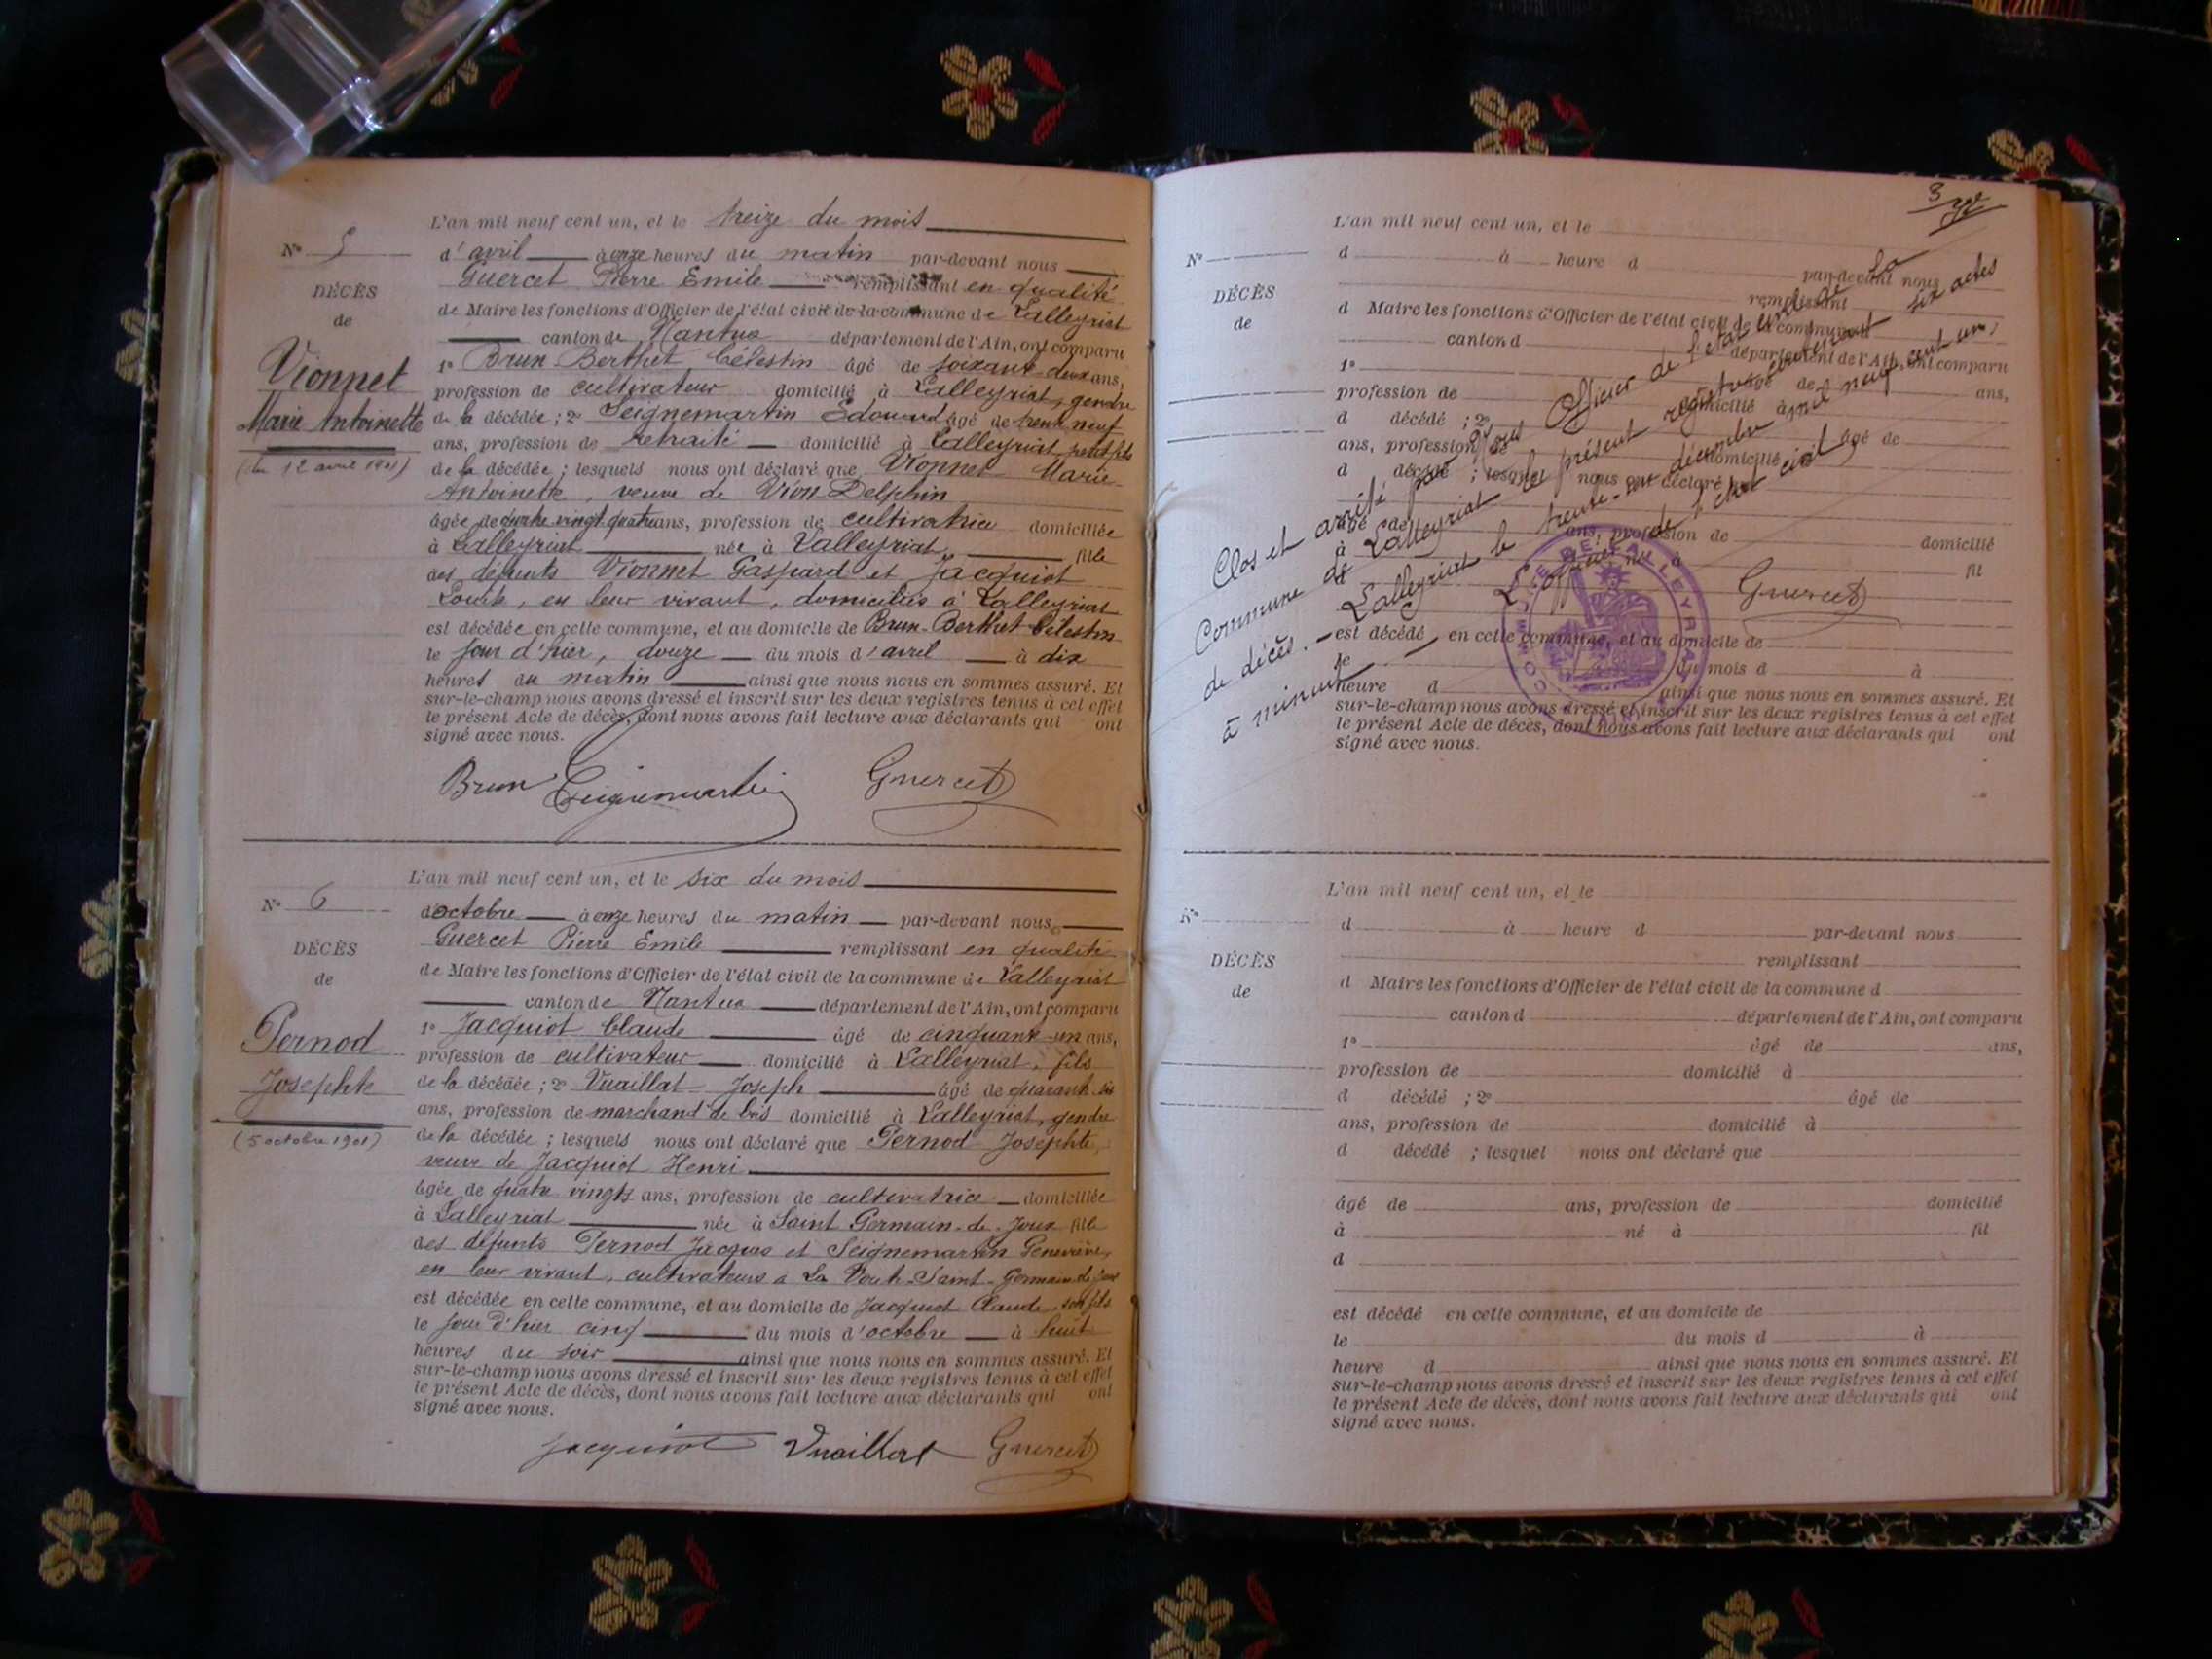 L'an mil neuf cent un, et le treize du mois
N° 5
d'avril à onze heures du matin par-devant nous
Guercet Pierre Emile remplissant en qualité
DÉCÈS
de Maire les fonctions d'Officier de l'état civil de la commune de Lalleyriat
de
canton de Nantua département de l'Ain, ont comparu
Vionnet
1° Brun-Berthet Célestin âgé de soixante deux ans,
profession de cultivateur domicilié à Lalleyriat, gendre
Marie Antoinette
de la décédée ; 2° Seignemartin Edouard âgé de trente neuf
ans, profession de retraité domicilié à Lalleyriat, petit fils
(du 12 avril 1901)
de la décédée ; lesquels nous ont déclaré que Vionnet Marie
Antoinette, veuve de Vion-Delphin
âgée de quatre vingt quatre ans, profession de cultivatrice domiciliée
à Lalleyriat née à Lalleyriat fille
des défunts Vionnet Gaspard et Jacquiot
Louise, en leur vivant, domiciliés à Lalleyriat
est décédée en cette commune, et au domicile de Brun-Berthet Célestin
le jour d'hier, douze du mois d'avril à dix
heures du matin ainsi que nous nous en sommes assuré. Et
sur-le-champ nous avons dressé et inscrit sur les deux registres tenus à cet effet
le présent Acte de décès, dont nous avons fait lecture aux déclarants qui ont
signé avec nous.
Brun Seignemartin Guercet
L'an mil neuf cent un, et le six du mois
N° 6
d'octobre à onze heures du matin par-devant nous
Guercet Pierre Emile remplissant en qualité
DÉCÈS
de Maire les fonctions d'Officier de l'état civil de la commune de Lalleyriat
de
canton de Nantua département de l'Ain, ont comparu
Pernod
1° Jacquiot Claude âgé de cinquante-un ans,
profession de cultivateur domicilié à Lalleyriat, fils
Josephte
de la décédée ; 2° Vuaillat Joseph âgé de quarante-six
ans, profession de marchand de bois domicilié à Lalleyriat, gendre
(5 octobre 1901)
de la décédée ; lesquels nous ont déclaré que Pernod Josephte,
veuve de Jacquiot Henri
âgée de quatre vingts ans, profession de cultivatrice domiciliée
à Lalleyriat née à Saint Germain-de-Joux fille
des défunts Pernod Jacques et Seignemartin Geneviève,
en leur vivant, cultivateurs à La Voute-Saint-Germain-de-Joux
est décédée en cette commune, et au domicile de Jacquiot Claude, son fils
le jour d'hier cinq du mois d'octobre à huit
heures du soir ainsi que nous nous en sommes assuré. Et
sur-le-champ nous avons dressé et inscrit sur les deux registres tenus à cet effet
le présent Acte de décès, dont nous avons fait lecture aux déclarants qui ont
signé avec nous.
Jacquiot Vuaillat Guercet
3
L'an mil neuf cent un, et le
N°
d à heure d par-devant nous
remplissant
DÉCÈS
d Maire les fonctions d'Officier de l'état civil de la commune d
de
canton d département de l'Ain, ont comparu
1° âgé de ans,
profession de domicilié à
d décédé ; 2° âgé de
ans, profession de domicilié
d décédé ; lesquel nous ont déclaré que
âgé de ans, profession de domicilié
à né à fil
d
est décédé en cette commune, et au domicile de
le du mois d à
heure d ainsi que nous nous en sommes assuré. Et
sur-le-champ nous avons dressé et inscrit sur les deux registres tenus à cet effet
le présent Acte de décès, dont nous avons fait lecture aux déclarants qui ont
signé avec nous.
Clos et arrêté par Nous Officier de l'état civil de la
commune de Lalleyriat le présent registre contenant six actes
de décès. — Lalleyriat le trente-un décembre mil neuf cent un,
à minuit. — L'officier de l'état civil
Guercet
COMMUNE DE LALLEYRIAT (AIN)
L'an mil neuf cent un, et le
N°
d à heure d par-devant nous
remplissant
DÉCÈS
d Maire les fonctions d'Officier de l'état civil de la commune d
de
canton d département de l'Ain, ont comparu
1° âgé de ans,
profession de domicilié à
d décédé ; 2° âgé de
ans, profession de domicilié à
d décédé ; lesquel nous ont déclaré que
âgé de ans, profession de domicilié
à né à fil
d
est décédé en cette commune, et au domicile de
le du mois d à
heure d ainsi que nous nous en sommes assuré. Et
sur-le-champ nous avons dressé et inscrit sur les deux registres tenus à cet effet
le présent Acte de décès, dont nous avons fait lecture aux déclarants qui ont
signé avec nous.